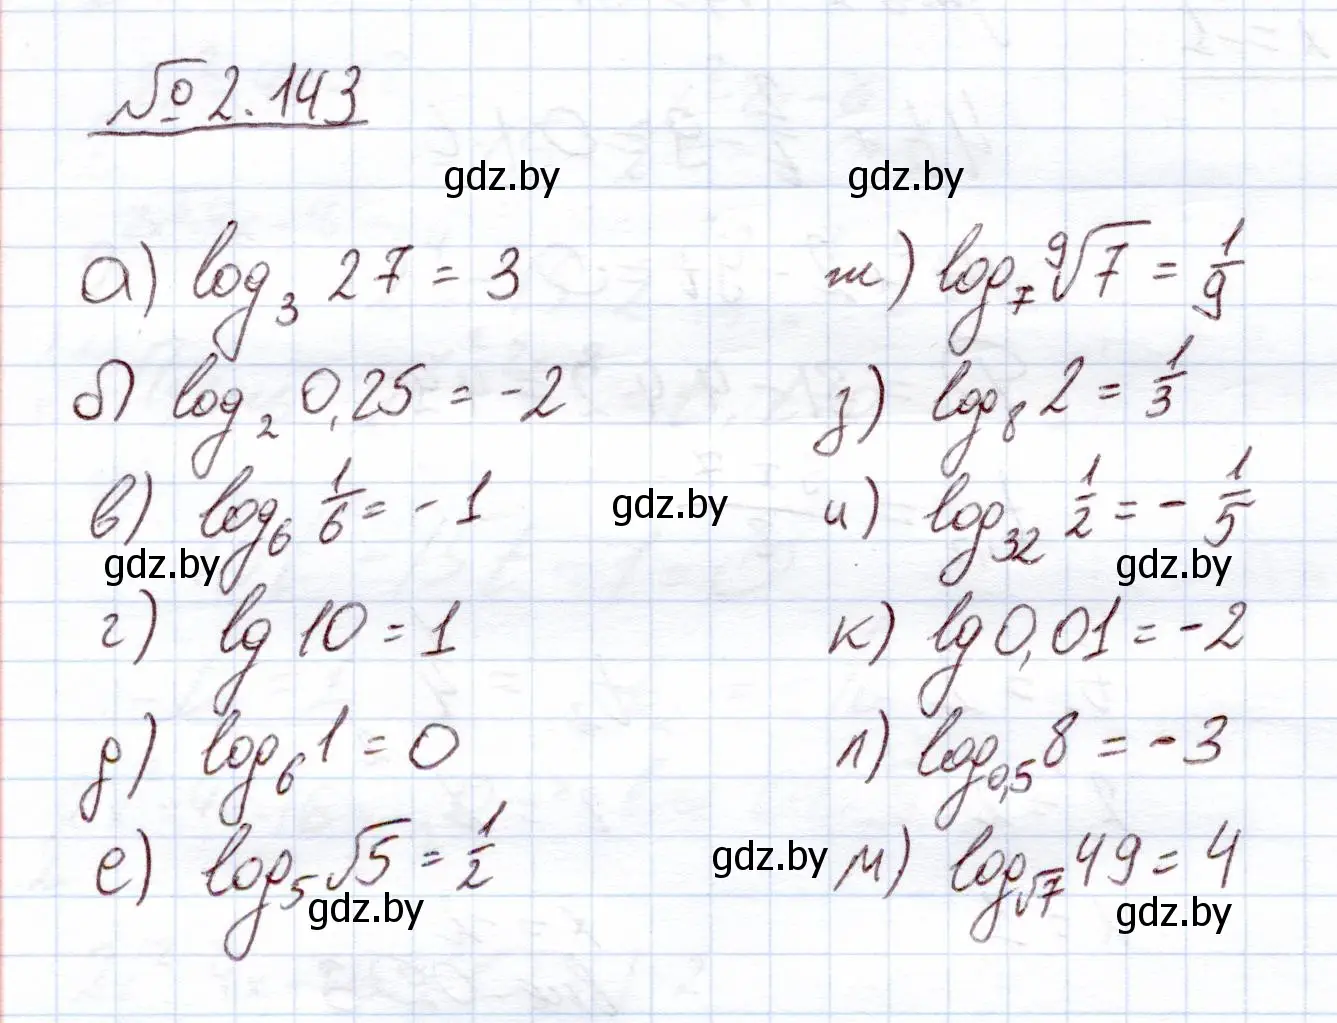 № 2.143
gdz.by gdz.by
а) log₃ 27 = 3
б) log₂ 0,25 = -2
в) log₆ 1/6 = -1
gdz.by
г) lg 10 = 1
д) log₆ 1 = 0
е) log₅ √5 = 1/2
gdz.by
ж) log₇ ⁹√7 = 1/9
з) log₈ 2 = 1/3
gdz.by
и) log₃₂ 1/2 = - 1/5
gdz.by
к) lg 0,01 = -2
л) log₀,₅ 8 = -3
gdz.by
м) log_√7 49 = 4
gdz.by